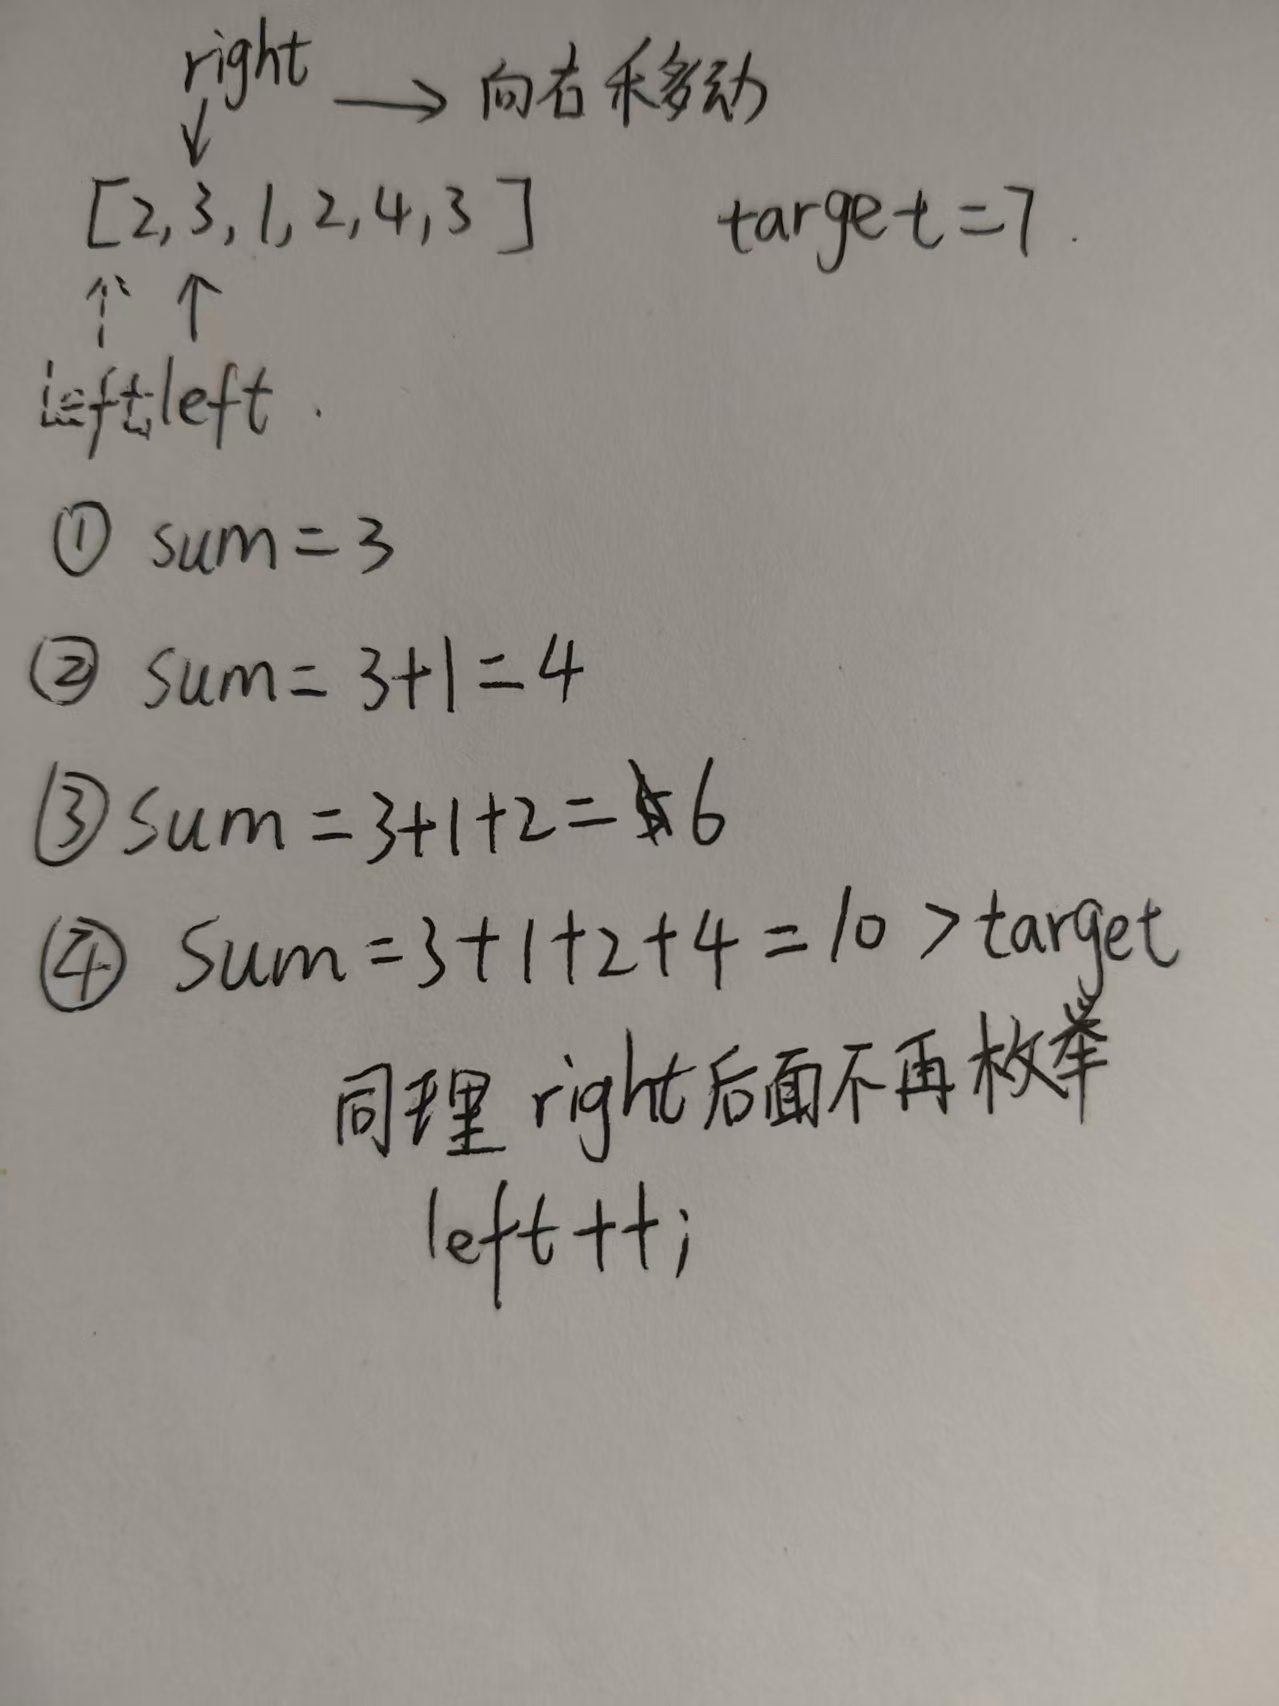 right → 向右移动
[2,3,1,2,4,3] target=7.
left left.
① sum=3
② sum=3+1=4
③ sum=3+1+2=6
④ sum=3+1+2+4=10 >target
同理 right后面不再枚举
left++;